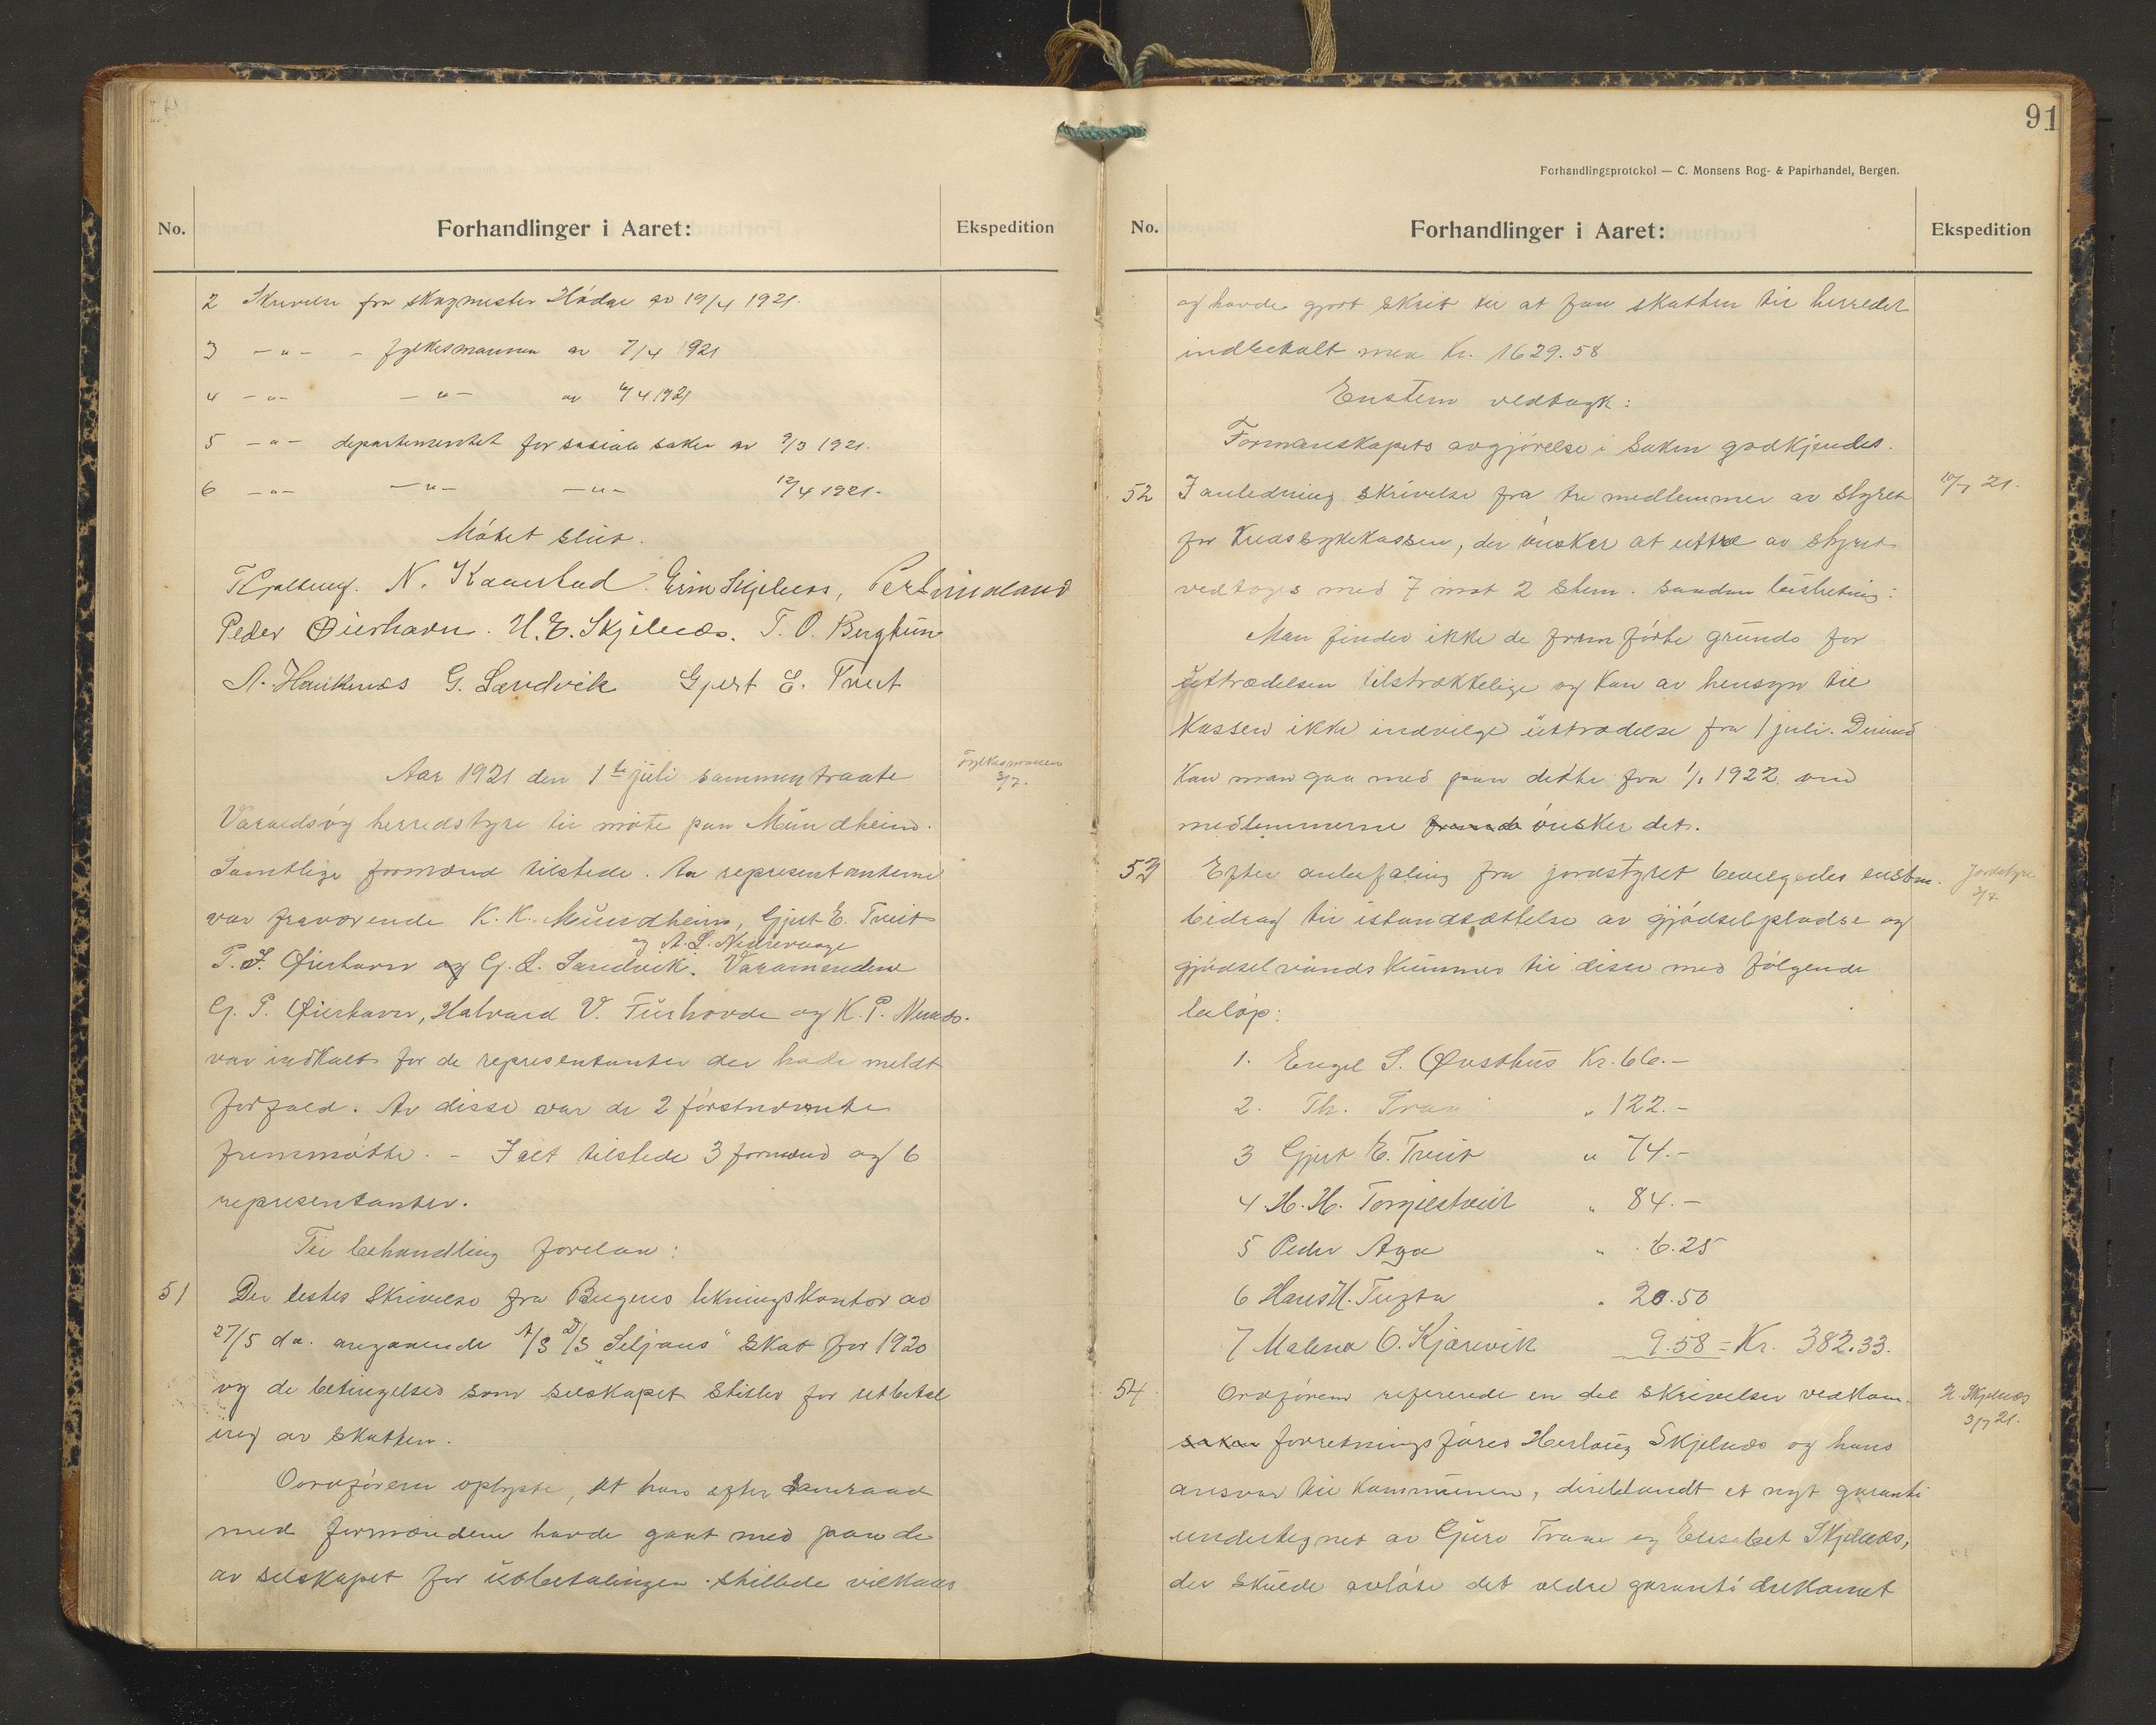 No.
Forhandlinger i Aaret:
Ekspedition
2 Skrivelse fra skogmester Hödal av 19/4 1921.
3 -"- - fylkesmannen av 7/4 1921
4 -"- -"- av 6/4 1921
5 -"- departementet for sosiale saker av 9/3 1921.
6 -"- -"- -"- 12/4 1921.
Mötet slut.
N. Kaarstad. Erik Skjelnes,
Peder Øierhavn. H. E. Skjelnæs. T. O. Berghun
A. Hauknæs G. Sandvik Gjert E. Tveit
Aar 1921 den 1ste juli sammentraate
Fylkesmannen
3/7.
Varaldsöy herredstyre til möte paa Mundheim.
Samtlige formænd tilstede. Av representanterne
var fraværende K. K. Mundheim, Gjert E. Tveit
og A. L. Nedrevaage
P. S. Øierhavn og G. L. Sandvik. Varamendene
G. P. Øierhavn, Halvard V. Furhovde og K. P. Nernes.
var indkaldt for de representanter der hade meldt
forfald. Av disse var de 2 förstnævnte
fremmötte. - Ialt tilstede 3 formænd og 6
representanter.
Til behandling forelaa:
51 Der lestes skrivelse fra Bergens likningskontor av
27/5 d.a. angaaende A/S D/S "Seljans" skat for 1920
og de betingelser som selskapet stiller for utbetal
ing av skatten.
Ordföreren oplyste, at han efter samraad
med formændene havde gaat med paa de
av selskapet for utbetalingen stillede vilkaar
91
Forhandlingsprotokol — C. Monsens Bog- & Papirhandel, Bergen.
No.
Forhandlinger i Aaret:
Ekspedition
og havde gjort skrit til at faa skatten til herredet
indbetalt med Kr. 1629.58
Enstem vedtagk:
Formanskapets avgjörelse i saken godkjendes.
52 I anledning skrivelse fra tre medlemmer av styret
10/7 21.
for Kredssykekassen, der önsker at uttræ av styret
vedtoges med 7 mot 2 stem. saadan beslutning:
Man finder ikke de fremförte grunde for
uttrædelsen tilstrækkelige og kan av hensyn til
kassen ikke indvilge uttrædelse fra 1 juli. Derimod
kan man gaa med paa dette fra 1/1 1922 om
medlemmerne önsker det.
53 Efter anbefaling fra jordstyret bevilgedes enstm.
Jordstyre
3/7
bidrag til istandsættelse av gjödselpladse og
gjödselvandskummer til disse med fölgende
belöp:
1. Engel S. Øvsthus Kr. 66.-
2. Th. Tran " 122.-
3 Gjert E. Tveit " 74.-
4 H. H. Torgilstveit " 84.-
5 Peder Aga " 6.25
6 Hans H. Tufta " 20.50
7 Malena O. Kjærevik 9.58 = Kr. 382.33.
54 Ordföreren refererede en del skrivelser vedkom.
H. Skjelnæs
3/7 21.
saken forretningsförer Herlaug Skjelnæs og hans
ansvar til kommunen, deriblandt et nyt garanti
undertegnet av Guro Trane og Elisabet Skjelnæs,
der skulde avlöse det ældre garanti dokument